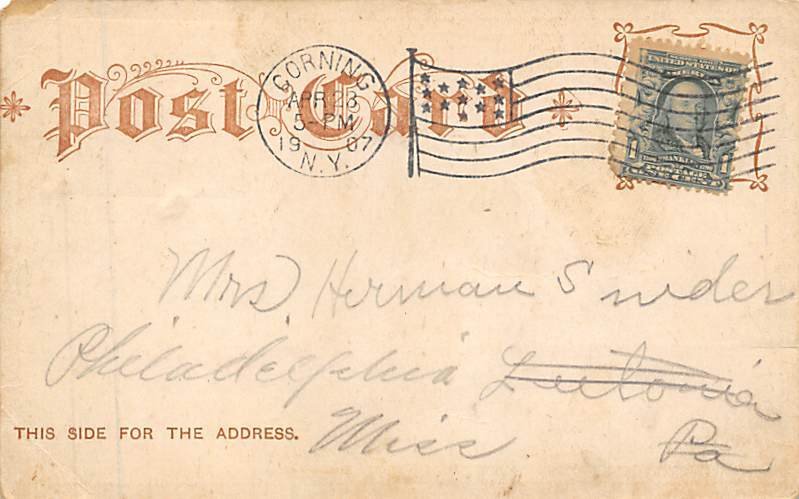 Post Card
CORNING
APR 23
5 PM
1907
N.Y.
UNITED STATES OF
1 FRANKLIN 1
POSTAGE
ONE CENT
Mrs. Herman Snider
Philadelphia Leetonia
Miss Pa
THIS SIDE FOR THE ADDRESS.